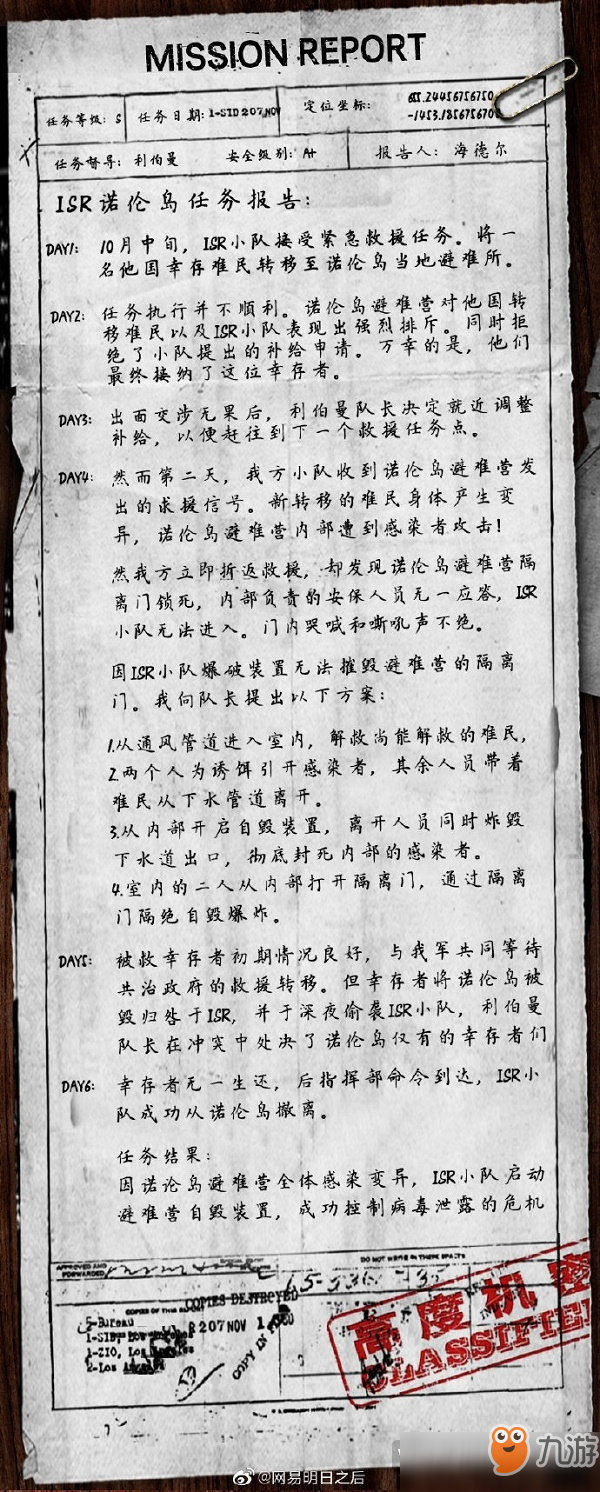 MISSION REPORT
任务等级: S 任务日期: 1-SID207.NOV 定位坐标:
655.24456756750
-1453.1856756706
任务督导: 利伯曼 安全级别: A+ 报告人: 海德尔
ISR诺伦岛任务报告:
DAY1: 10月中旬，ISR小队接受紧急救援任务。将一
名他国幸存难民转移至诺伦岛当地避难所。
DAY2: 任务执行并不顺利。诺伦岛避难营对他国转
移难民以及ISR小队表现出强烈排斥。同时拒
绝了小队提出的补给申请。万幸的是，他们
最终接纳了这位幸存者。
DAY3: 出面交涉无果后，利伯曼队长决定就近调整
补给，以便赶往到下一个救援任务点。
DAY4: 然而第二天，我方小队收到诺伦岛避难营发
出的求援信号。新转移的难民身体产生变
异，诺伦岛避难营内部遭到感染者攻击!
然我方立即折返救援，却发现诺伦岛避难营隔
离门锁死，内部负责的安保人员无一应答，ISR
小队无法进入。门内哭喊和嘶吼声不绝。
因ISR小队爆破装置无法摧毁避难营的隔离
门。我向队长提出以下方案:
1.从通风管道进入室内，解救尚能解救的难民，
2.两个人为诱饵引开感染者，其余人员带着
难民从下水管道离开。
3.从内部开启自毁装置，离开人员同时炸毁
下水道出口，彻底封死内部的感染者。
4.室内的二人从内部打开隔离门，通过隔离
门隔绝自毁爆炸。
DAY5: 被救幸存者初期情况良好，与我军共同等待
共治政府的救援转移。但幸存者将诺伦岛被
毁归咎于ISR，并于深夜偷袭ISR小队，利伯曼
队长在冲突中处决了诺伦岛仅有的幸存者们
DAY6: 幸存者无一生还，后指挥部命令到达，ISR小
队成功从诺伦岛撤离。
任务结果:
因诺论岛避难营全体感染变异，ISR小队启动
避难营自毁装置，成功控制病毒泄露的危机
APPROVED AND
FORWARDED
DO NOT WRITE IN THESE SPACES
COPIES DESTROYED
COPIES OF THIS
5-Bureau
207 NOV 1
1-ZIO, Los
2-Los
COPY IN
高度机密
CLASSIFIE
@网易明日之后
九游